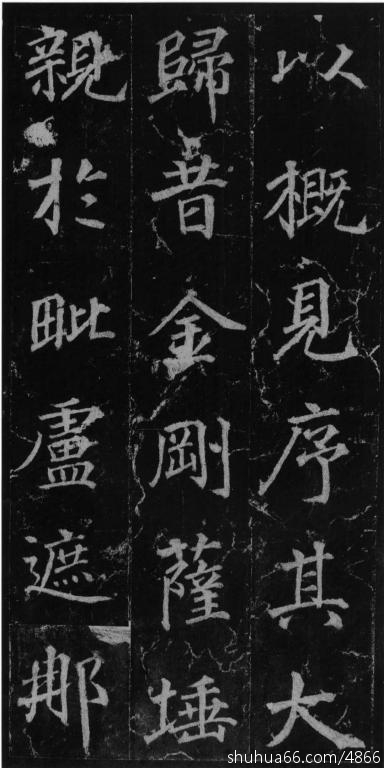 以概見序其大
歸昔金剛薩埵
親於毗盧遮那
shuhua66.com/4866